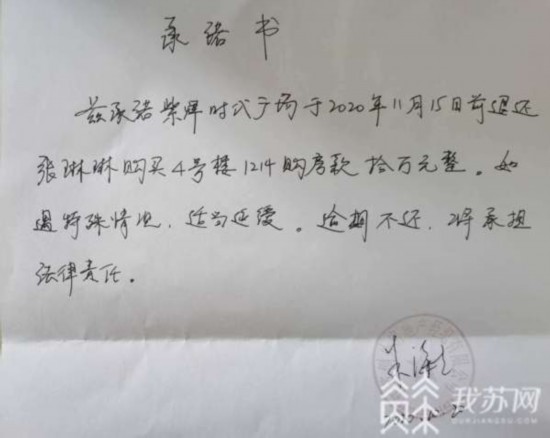 承诺书
兹承诺紫辉时代广场于2020年11月15日前退还
张琳琳购买4号楼1214购房款拾万元整。如
遇特殊情况，适当延缓。逾期不还，将承担
法律责任。
我苏网
OURJIANGSU.COM